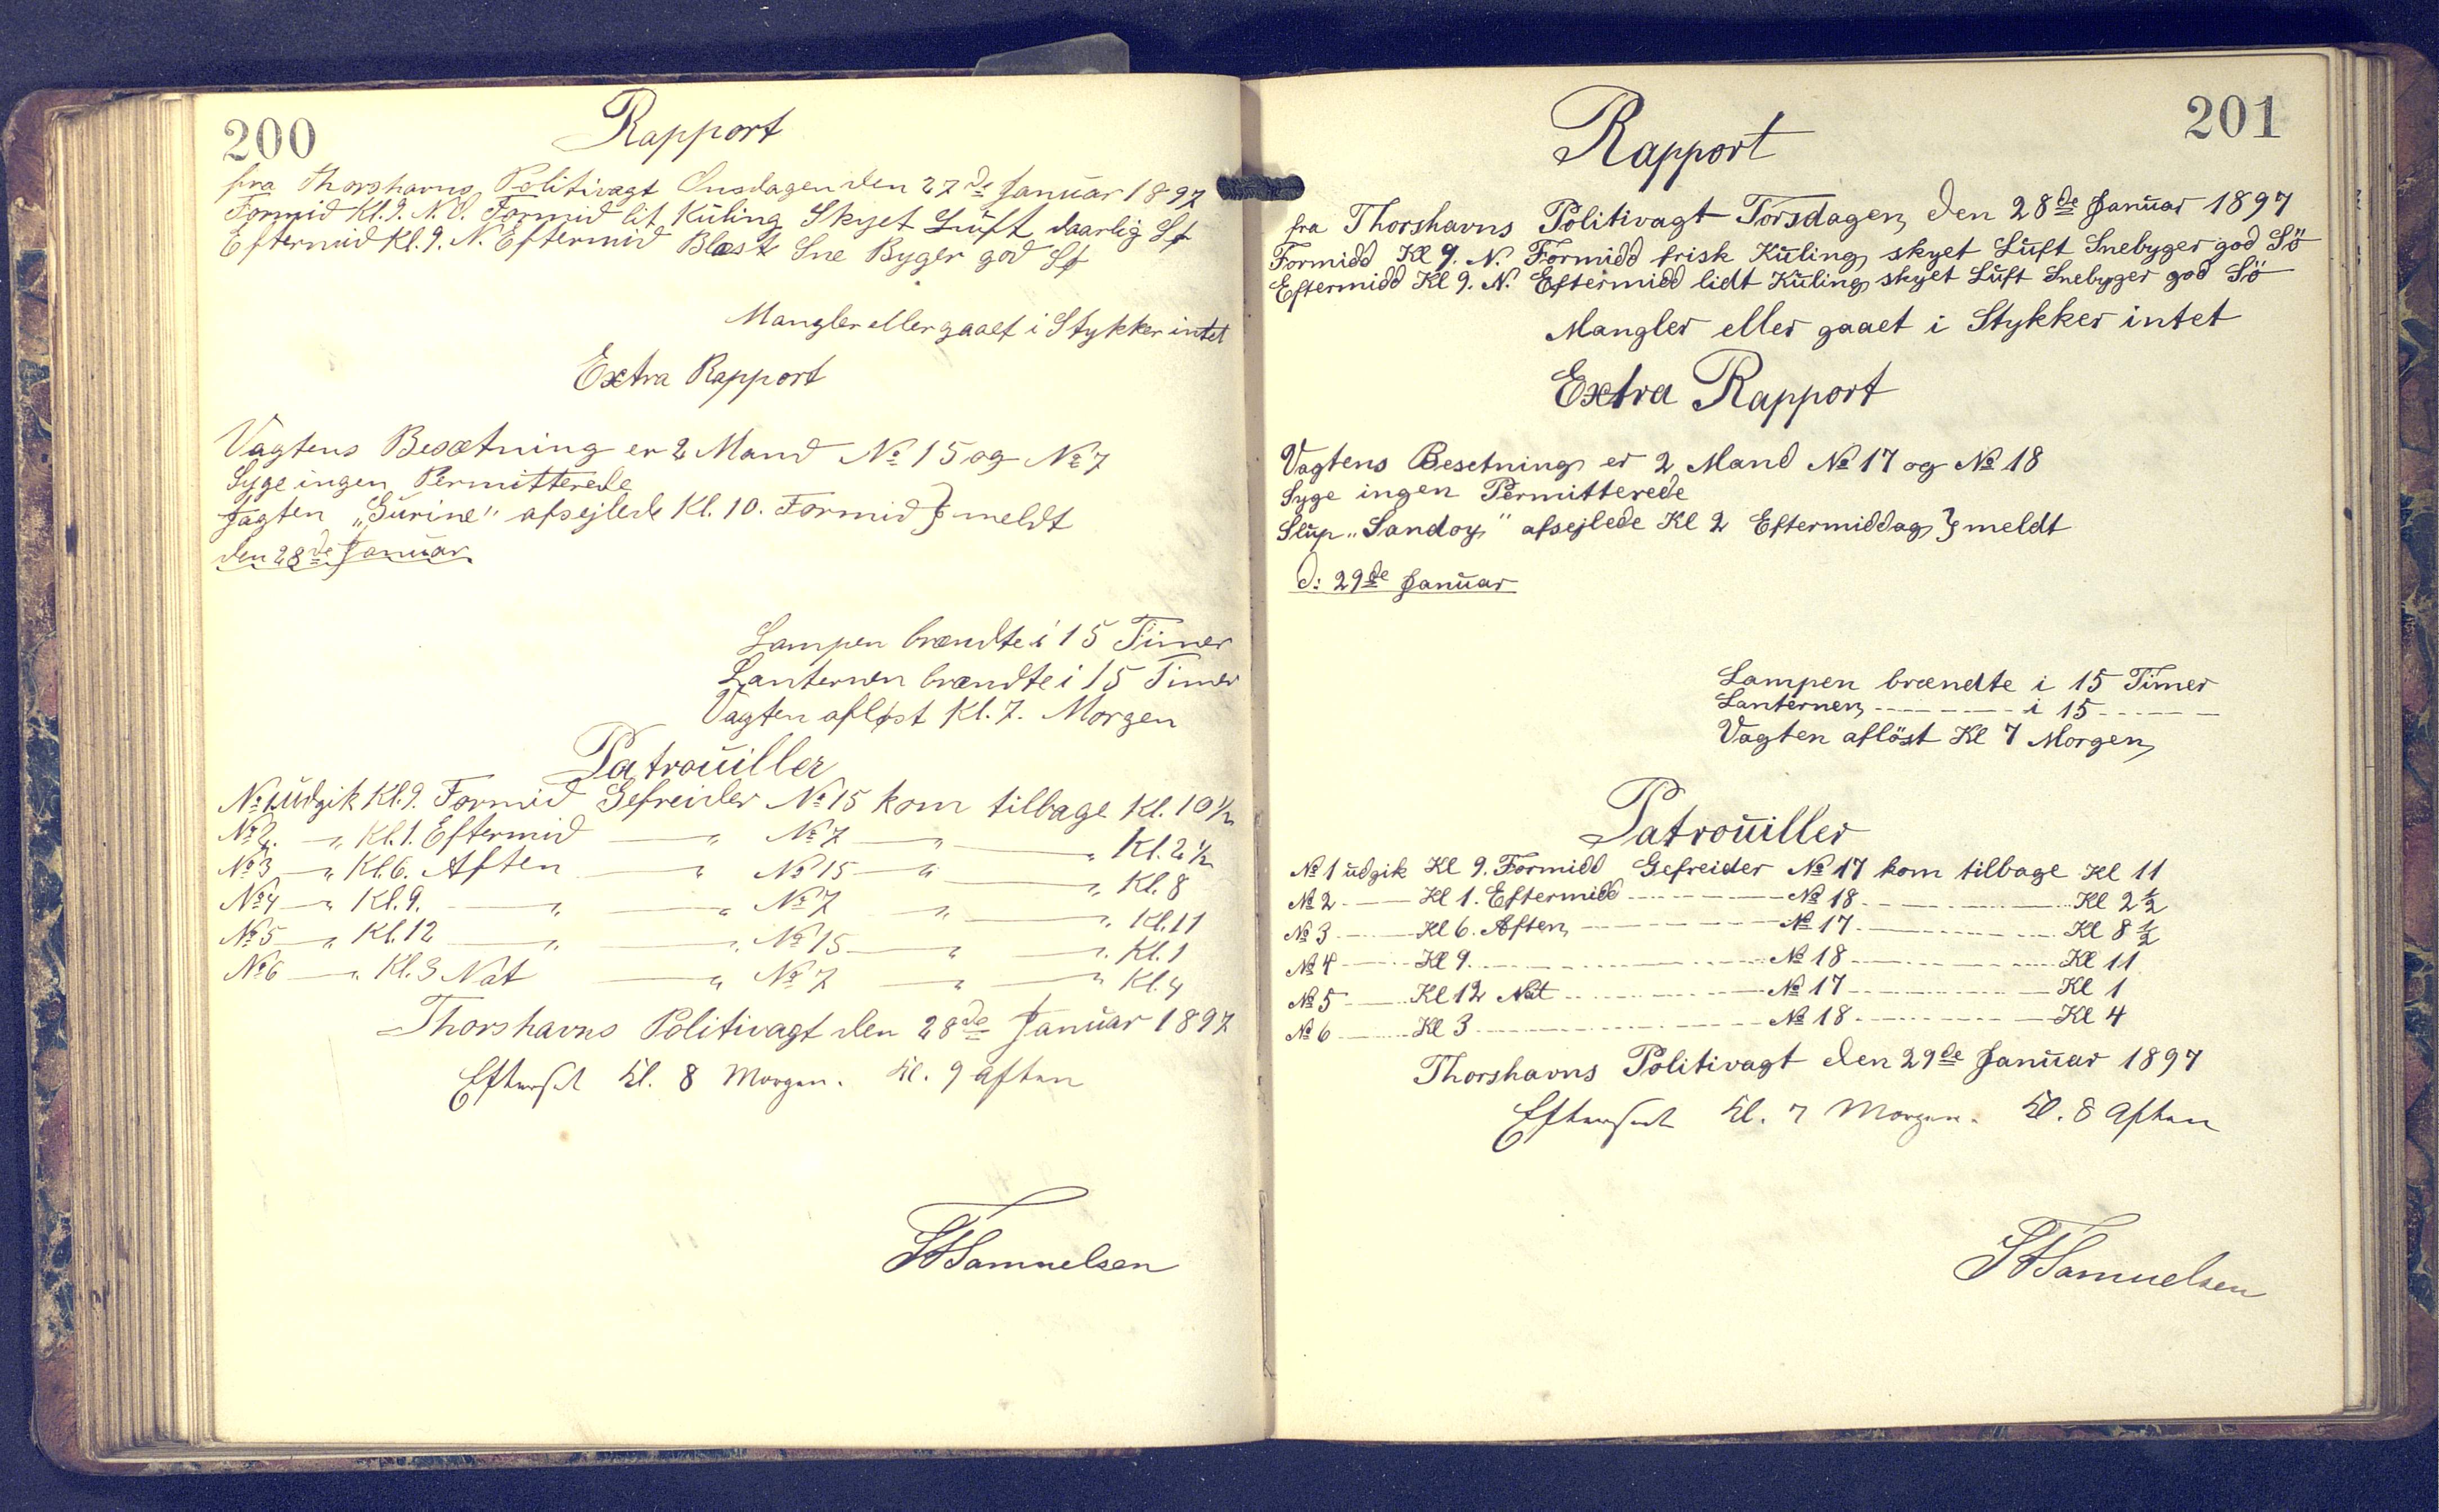 200
Rapport
fra Thorshavns Politivagt Onsdagen den 27de Januar 1897
Formid Kl. 9. N. O. Formid lit Kūling Skyet Lūft daarlig Sø
Eftermid Kl. 9. N. Eftermid Blæst Sne Byger god Sø
Mangler eller gaaet i Stykker intet
Extra Rapport
Vagtens Besætning er 2 Mand № 15 og № 7
Syge ingen Permitterede
Jagten „Gūrine" afsejlede Kl. 10. Formid } meldt
den 28de Janūar
Lampen brændte i 15 Timer
Lanternen brændte i 15 Timer
Vagten afløst Kl. 7. Morgen
Patroūiller
№ 1 ūdgik Kl. 9. Formid Gefreider № 15 kom tilbage Kl. 10 ½
№ 2. — „ Kl. 1. Eftermid — „ № 7 — „ — „ Kl. 2 ½
№ 3 — „ Kl. 6. Aften — „ № 15 — „ — „ Kl. 8
№ 4 — „ Kl. 9. — „ — „ № 7 „ — „ Kl. 11
№ 5 — „ Kl. 12 — „ — „ № 15 — „ — „ Kl. 1
№ 6 — „ Kl. 3 Nat — „ № 7 — „ — „ Kl. 4
Thorshavns Politivagt den 28de Janūar 1897
Efterset Kl. 8 Morgen. Kl. 9 Aften
Samuelsen
201
Rapport
fra Thorshavns Politivagt Torsdagen den 28de Janūar 1897
Formidd Kl 9. N. Formidd frisk Kūling skyet Lūft Snebyger god Sö
Eftermidd Kl 9. N. Eftermidd lidt Kūling skyet Lūft Snebyger god Sö
Mangler eller gaaet i Stykker intet
Extra Rapport
Vagtens Besetning er 2 Mand № 17 og № 18
Syge ingen Permitterede
Slūp „Sandoy" afsejlede Kl 2 Eftermiddag } meldt
d: 29de Janūar
Lampen brændte i 15 Timer
Lanternen — i 15 —
Vagten aflöst Kl 7 Morgen
Patroūiller
№ 1 ūdgik Kl 9. Formidd Gefreider № 17 kom tilbage Kl 11
№ 2 — Kl 1. Eftermidd — № 18 — Kl 2 ½
№ 3 — Kl 6. Aften — № 17 — Kl 8 ½
№ 4 — Kl 9. — № 18 — Kl 11
№ 5 — Kl 12 Nat — № 17 — Kl 1
№ 6 — Kl 3 — № 18 — Kl 4
Thorshavns Politivagt den 29de Janūar 1897
Efterset Kl. 7 Morgen. Kl. 8 Aften
Samuelsen